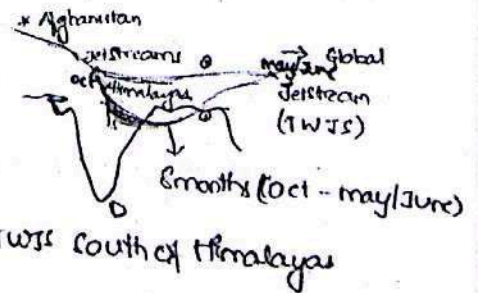 * Afghanistan
Jetstreams
Oct
Himalayas
may/June
Global
Jetstream
(TWJS)
8months (Oct - may/June)
TWJS South of Himalayas